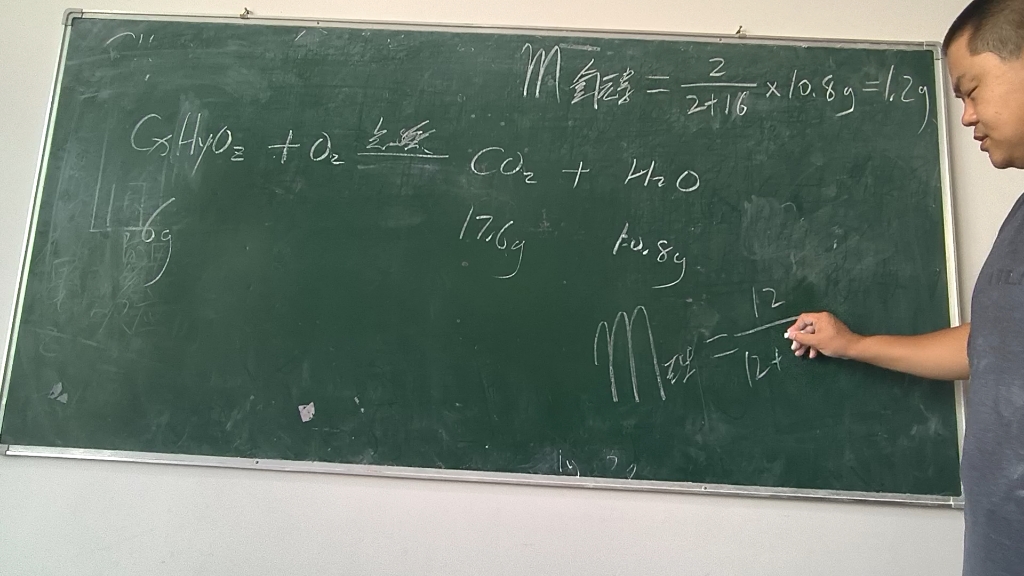 m氢元素 = 2/(2+16) ×10.8g=1.2g
CxHyOz + O₂ 点燃 CO₂ + H₂O
17.6g 10.8g
m = 12/(12+